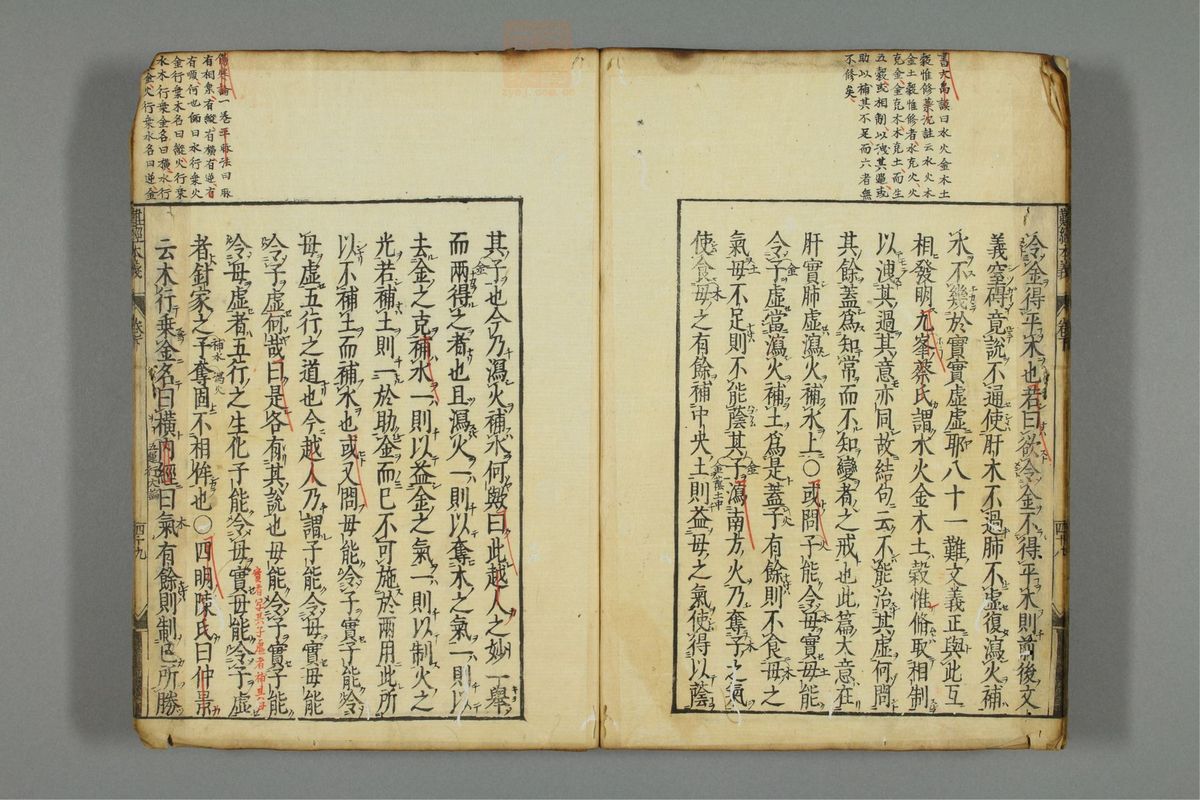 書大禹謨曰水火金木土
穀惟修蔡沈註云水火木
金土穀惟修者水克火火
克金金克木木克土而生
五穀或相制以洩其過或
助以補其不足而六者無
不修矣
冷金得平木也若曰欲令金不得平木則前後文
義窒碍竟説不通使肝木不過肺不虛復瀉火補
水不幾於實實虛虛耶八十一難文義正與此互
相發明九峯蔡氏謂水火金木土穀惟脩取相制
以洩其過其意亦同故結句云不能治其虛何問
其餘蓋爲知常而不知變者之戒也此篇大意在
肝實肺虛瀉火補水上○或問子能令母實母能
令子虛當瀉火補土爲是蓋子有餘則不食母之
氣母不足則不能蔭其子瀉南方火乃奪子之氣
使食母之有餘補中央土則益母之氣使得以蔭
難經本義
其子也今乃瀉火補水何歟曰此越人之妙一舉
而兩得之者也且瀉火一則以奪木之氣一則以
去金之克補水一則以益金之氣一則以制火之
光若補土則一於助金而已不可施於兩用此所
以不補土而補水也或又問母能令子實子能令
母虛五行之道也今越人乃謂子能令母實母能
令子虛何哉曰是各有其説也母能令子實子能
令母虛者五行之生化子能令母實母能令子虛
者針家之予奪固不相侔也○四明陳氏曰仲景
云木行乗金名曰橫内經曰氣有餘則制己所勝
補水
瀉火
實者寫其子虛者補其母
難經本義
四十九
傷寒論一卷平脉法曰脉
有相乗有縱有橫有逆有
有順何也師曰水行乗火
金行乗木名曰縱火行乗
水木行乗金名曰橫水行
乗金火行乗木名曰逆金